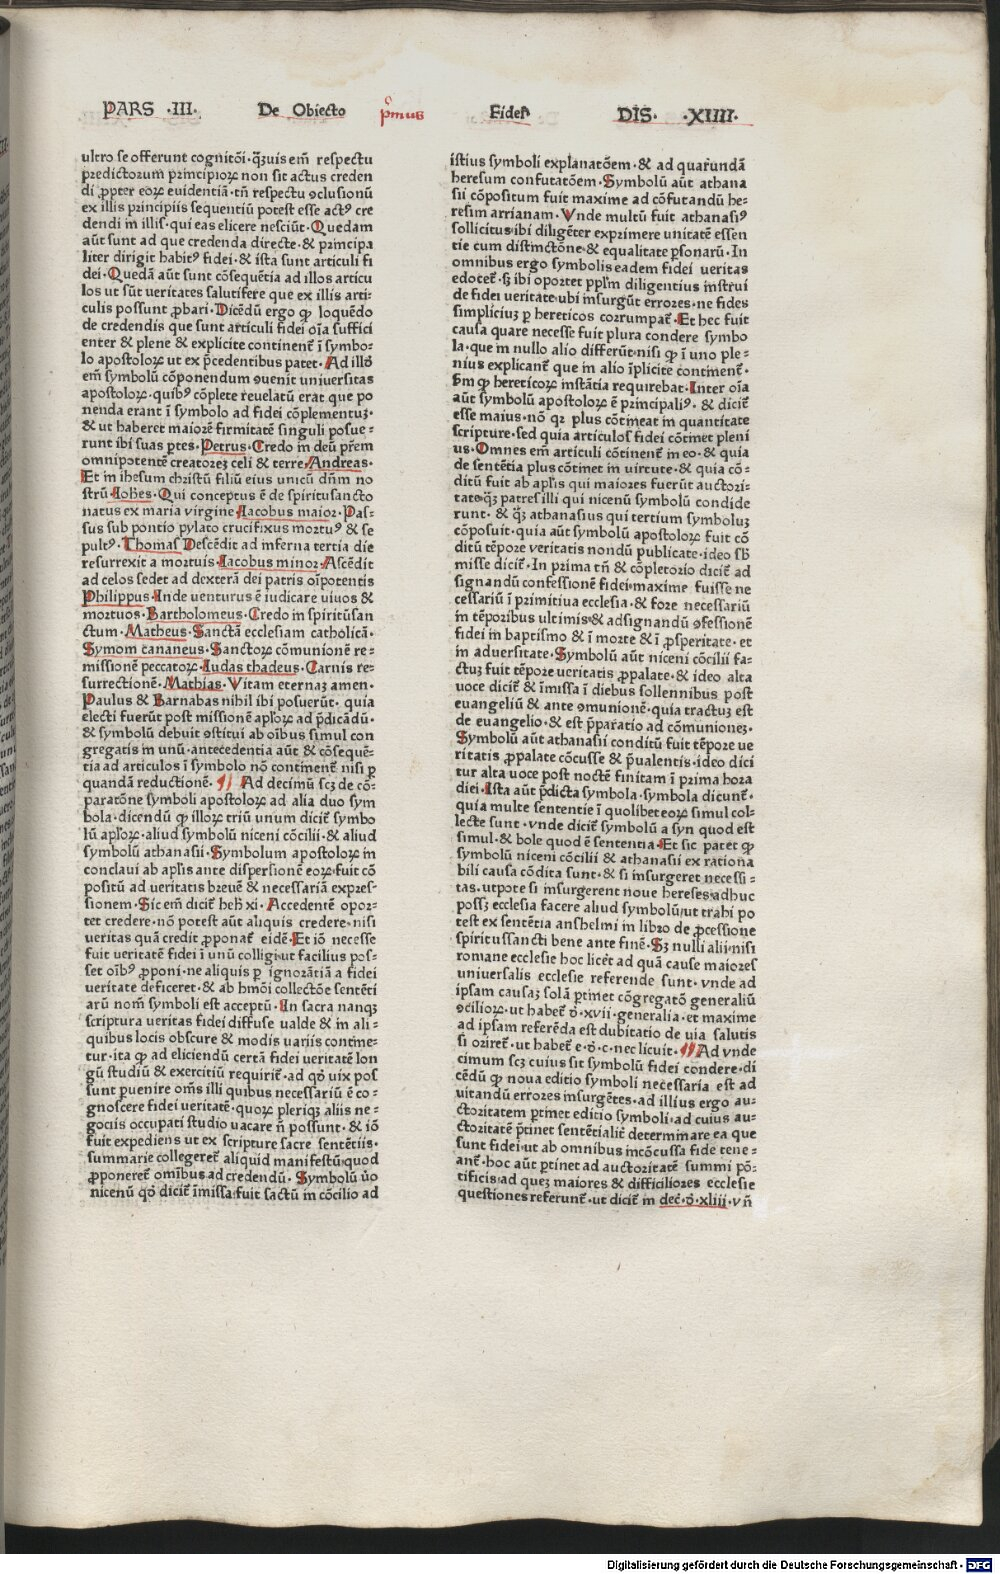 PARS ·III· De Obiecto p̊mus Fidei DIS· ·XIIII·
ultro se offerunt cognitōi· q̄zuis em̄ respectu
predictorum principioꝝ non sit actus creden
di ꝓpter eoꝝ euidentiā· tn̄ respectu ꝯclusionū
ex illis principiis sequentiū potest esse actꝰ cre
dendi in illis· qui eas elicere nesciūt· Quedam
aūt sunt ad que credenda directe· & principa
liter dirigit habitꝰ fidei· & ista sunt articuli fi
dei· Quedā aūt sunt cōsequētia ad illos articu
los ut sūt veritates salutifere que ex illis arti⸗
culis possunt ꝓbari· Dicēdū ergo ꝙ loquēdo
de credendis que sunt articuli fidei oīa suffici
enter & plene & explicite continent̄ ī symbo⸗
lo apostoloꝝ ut ex p̄cedentibus patet· Ad illō
em̄ symbolū cōponendum ꝯuenit uniuersitas
apostoloꝝ· quibꝰ cōplete reuelatū erat que po
nenda erant ī symbolo ad fidei cōplementuꝫ·
& ut haberet maiorē firmitatē singuli posue⸗
runt ibi suas ꝑtes· Petrus· Credo in deū pr̄em
omnipotentē creatoreꝫ celi & terre· Andreas·
Et in ihesum christū filiū eius unicū dn̄m no
strū· Ioħes· Qui conceptus ē de spiritusancto
natus ex maria virgine· Iacobus maior· Pas⸗
sus sub pontio pylato crucifixus mortuꝰ & se
pultꝰ· Thomas Descēdit ad inferna tertia die
resurrexit a mortuis· Iacobus minor· Ascēdit
ad celos sedet ad dexterā dei patris oīpotentis
Philippus· Inde venturus ē iudicare viuos &
mortuos· Bartholomeus· Credo in spiritūsan
ctum· Matheus· Sanctā ecclesiam catholicā·
Symom cananeus· Sanctoꝝ cōmunionē re⸗
missionē peccatoꝝ· Iudas thadeus· Carnis re⸗
surrectionē· Mathias· Vitam eternaꝫ amen·
Paulus & Barnabas nihil ibi posuerūt· quia
electi fuerūt post missionē apl'oꝝ ad p̄dicādū·
& symbolū debuit ꝯstitui ab oībus simul con
gregatis in unū· antecedentia aūt & cōsequē⸗
tia ad articulos ī symbolo nō continent̄ nisi ꝑ
quandā reductionē· ¶ Ad decimū scꝫ de cō⸗
paratōne symboli apostoloꝝ ad alia duo sym
bola· dicendū ꝙ illoꝝ triū unum dicit̄ symbo
lū apl'oꝝ· aliud symbolū niceni cōcilii· & aliud
symbolū athanasii· Symbolum apostoloꝝ in
conclaui ab apl'is ante dispersionē eoꝝ· fuit cō
positū ad veritatis breuē & necessariā expres⸗
sionem· Sic em̄ dicit̄ heb̄ xi· Accedentē opor⸗
tet credere· nō potest aūt aliquis credere· nisi
veritas quā credit ꝓponat̄ eidē· Et iō necesse
fuit veritatē fidei ī unū colligi· ut facilius pos⸗
set oībꝰ ꝓponi· ne aliquis ꝑ ignorātiā a fidei
veritate deficeret· & ab hmōi collectōe sentēti
arū nom̄ symboli est acceptū· In sacra nanqꝫ
scriptura veritas fidei diffuse ualde & in ali⸗
quibus locis obscure & modis uariis contine⸗
tur· ita ꝙ ad eliciendū certā fidei veritatē lon
gū studiū & exercitiū requirit̄· ad qd̄ uix pos
sunt ꝑuenire om̄s illi quibus necessariū ē co⸗
gnoscere fidei veritatē· quoꝝ pleriqꝫ aliis ne⸗
gociis occupati studio uacare n̄ possunt· & iō
fuit expediens ut ex scripture sacre sentētiis·
summarie collegeret̄ aliquid manifestū quod
ꝓponeret̄ omībus ad credendū· Symbolū ūo
nicenū qd̄ dicit̄ īmissa fuit factū in cōcilio ad
istius symboli explanatōem· & ad quarūdā
heresum confutatōem· Symbolū aūt athana
sii cōpositum fuit maxime ad cōfutandū he⸗
resim arrianam· Vnde multū fuit athanasiꝰ
sollicitus ibi diligēter exprimere unitatē essen
tie cum distinctōne & equalitate ꝑsonarū· In
omnibus ergo symbolis eadem fidei veritas
edocet̄· sꝫ ibi oportet ppl'm diligentius instrui
de fidei veritate ubi insurgūt errores· ne fides
simpliciuꝫ ꝑ hereticos corrumpat̄· Et hec fuit
causa quare necesse fuit plura condere symbo
la· que in nullo alio differūt· nisi ꝙ ī uno ple⸗
nius explicant̄ que in alio īplicite continent̄·
sm̄ ꝙ hereticoꝝ instātia requirebat· Inter oīa
aūt symbolū apostoloꝝ ē principaliꝰ· & dicit̄
esse maius· nō qꝛ plus cōtineat in quantitate
scripture· sed quia articulos fidei cōtinet pleni
us· Omnes em̄ articuli cōtinent̄ in eo· & quia
de sentētia plus cōtinet in virtute· & quia cō⸗
ditū fuit ab apl'is qui maiores fuerūt auctori⸗
tate· q̄ꝫ patres illi qui nicenū symbolū condide
runt· & q̄ꝫ athanasius qui tertium symboluꝫ
cōposuit· quia aūt symbolū apostoloꝝ fuit cō
ditū tēpore veritatis nondū publicate· ideo sb̄
misse dicit̄· In prima tn̄ & cōpletorio dicit̄ ad
signandū confessionē fidei· maxime fuisse ne
cessariū ī primitiua ecclesia· & fore necessariū
in tēporibus ultimis· & adsignandū ꝯfessionē
fidei in baptismo & ī morte & ī ꝓsperitate· et
in aduersitate· Symbolū aūt niceni cōcilii fa⸗
ctuꝫ fuit tēpore veritatis ꝓpalate· & ideo alta
uoce dicit̄ & īmissa ī diebus sollennibus post
euangeliū & ante ꝯmunionē· quia tractuꝫ est
de euangelio· & est p̄paratio ad cōmunioneꝫ·
Symbolū aūt athanasii conditū fuit tēpore ue
ritatis ꝓpalate cōcusse & p̄ualentis· ideo dici
tur alta uoce post noctē finitam ī prima hora
diei· Ista aūt p̄dicta symbola· symbola dicunt̄·
quia multe sententie ī quolibet eoꝝ simul col⸗
lecte sunt· vnde dicit̄ symbolū a syn quod est
simul· & bole quod ē sententia· Et sic patet ꝙ
symbolū niceni cōcilii & athanasii ex rationa
bili causa cōdita sunt· & si insurgeret necessi⸗
tas· utpote si insurgerent noue hereses adhuc
possꝫ ecclesia facere aliud symbolū· ut trahi po
test ex sentētia anshelmi in libro de ꝓcessione
spiritussancti bene ante finē· Sꝫ nulli alii nisi
romane ecclesie hoc licet· ad quā cause maiores
uniuersalis ecclesie referende sunt· vnde ad
ipsam causaꝫ solā ꝑtinet cōgregatō generaliū
ꝯcilioꝝ· ut habet̄ d̄·xvii· generalia· et maxime
ad ipsam referēda est dubitatio de uia salutis
si oriret̄· ut habet̄ e·d̄·c·nec licuit· ¶ Ad vnde
cimum scꝫ cuius sit symbolū fidei condere· di
cēdū ꝙ noua editio symboli necessaria est ad
uitandū errores insurgētes· ad illius ergo au⸗
ctoritatem ꝑtinet editio symboli· ad cuius au⸗
ctoritatē ꝑtinet sentētialit̄ determinare ea que
sunt fidei· ut ab omnibus incōcussa fide tene⸗
ant̄· hoc aūt ꝑtinet ad auctoritatē summi pō⸗
tificis· ad queꝫ maiores & difficiliores ecclesie
questiones referunt̄· ut dicit̄ in dec̄·d̄·xliii· vn̄
Digitalisierung gefördert durch die Deutsche Forschungsgemeinschaft - DFG